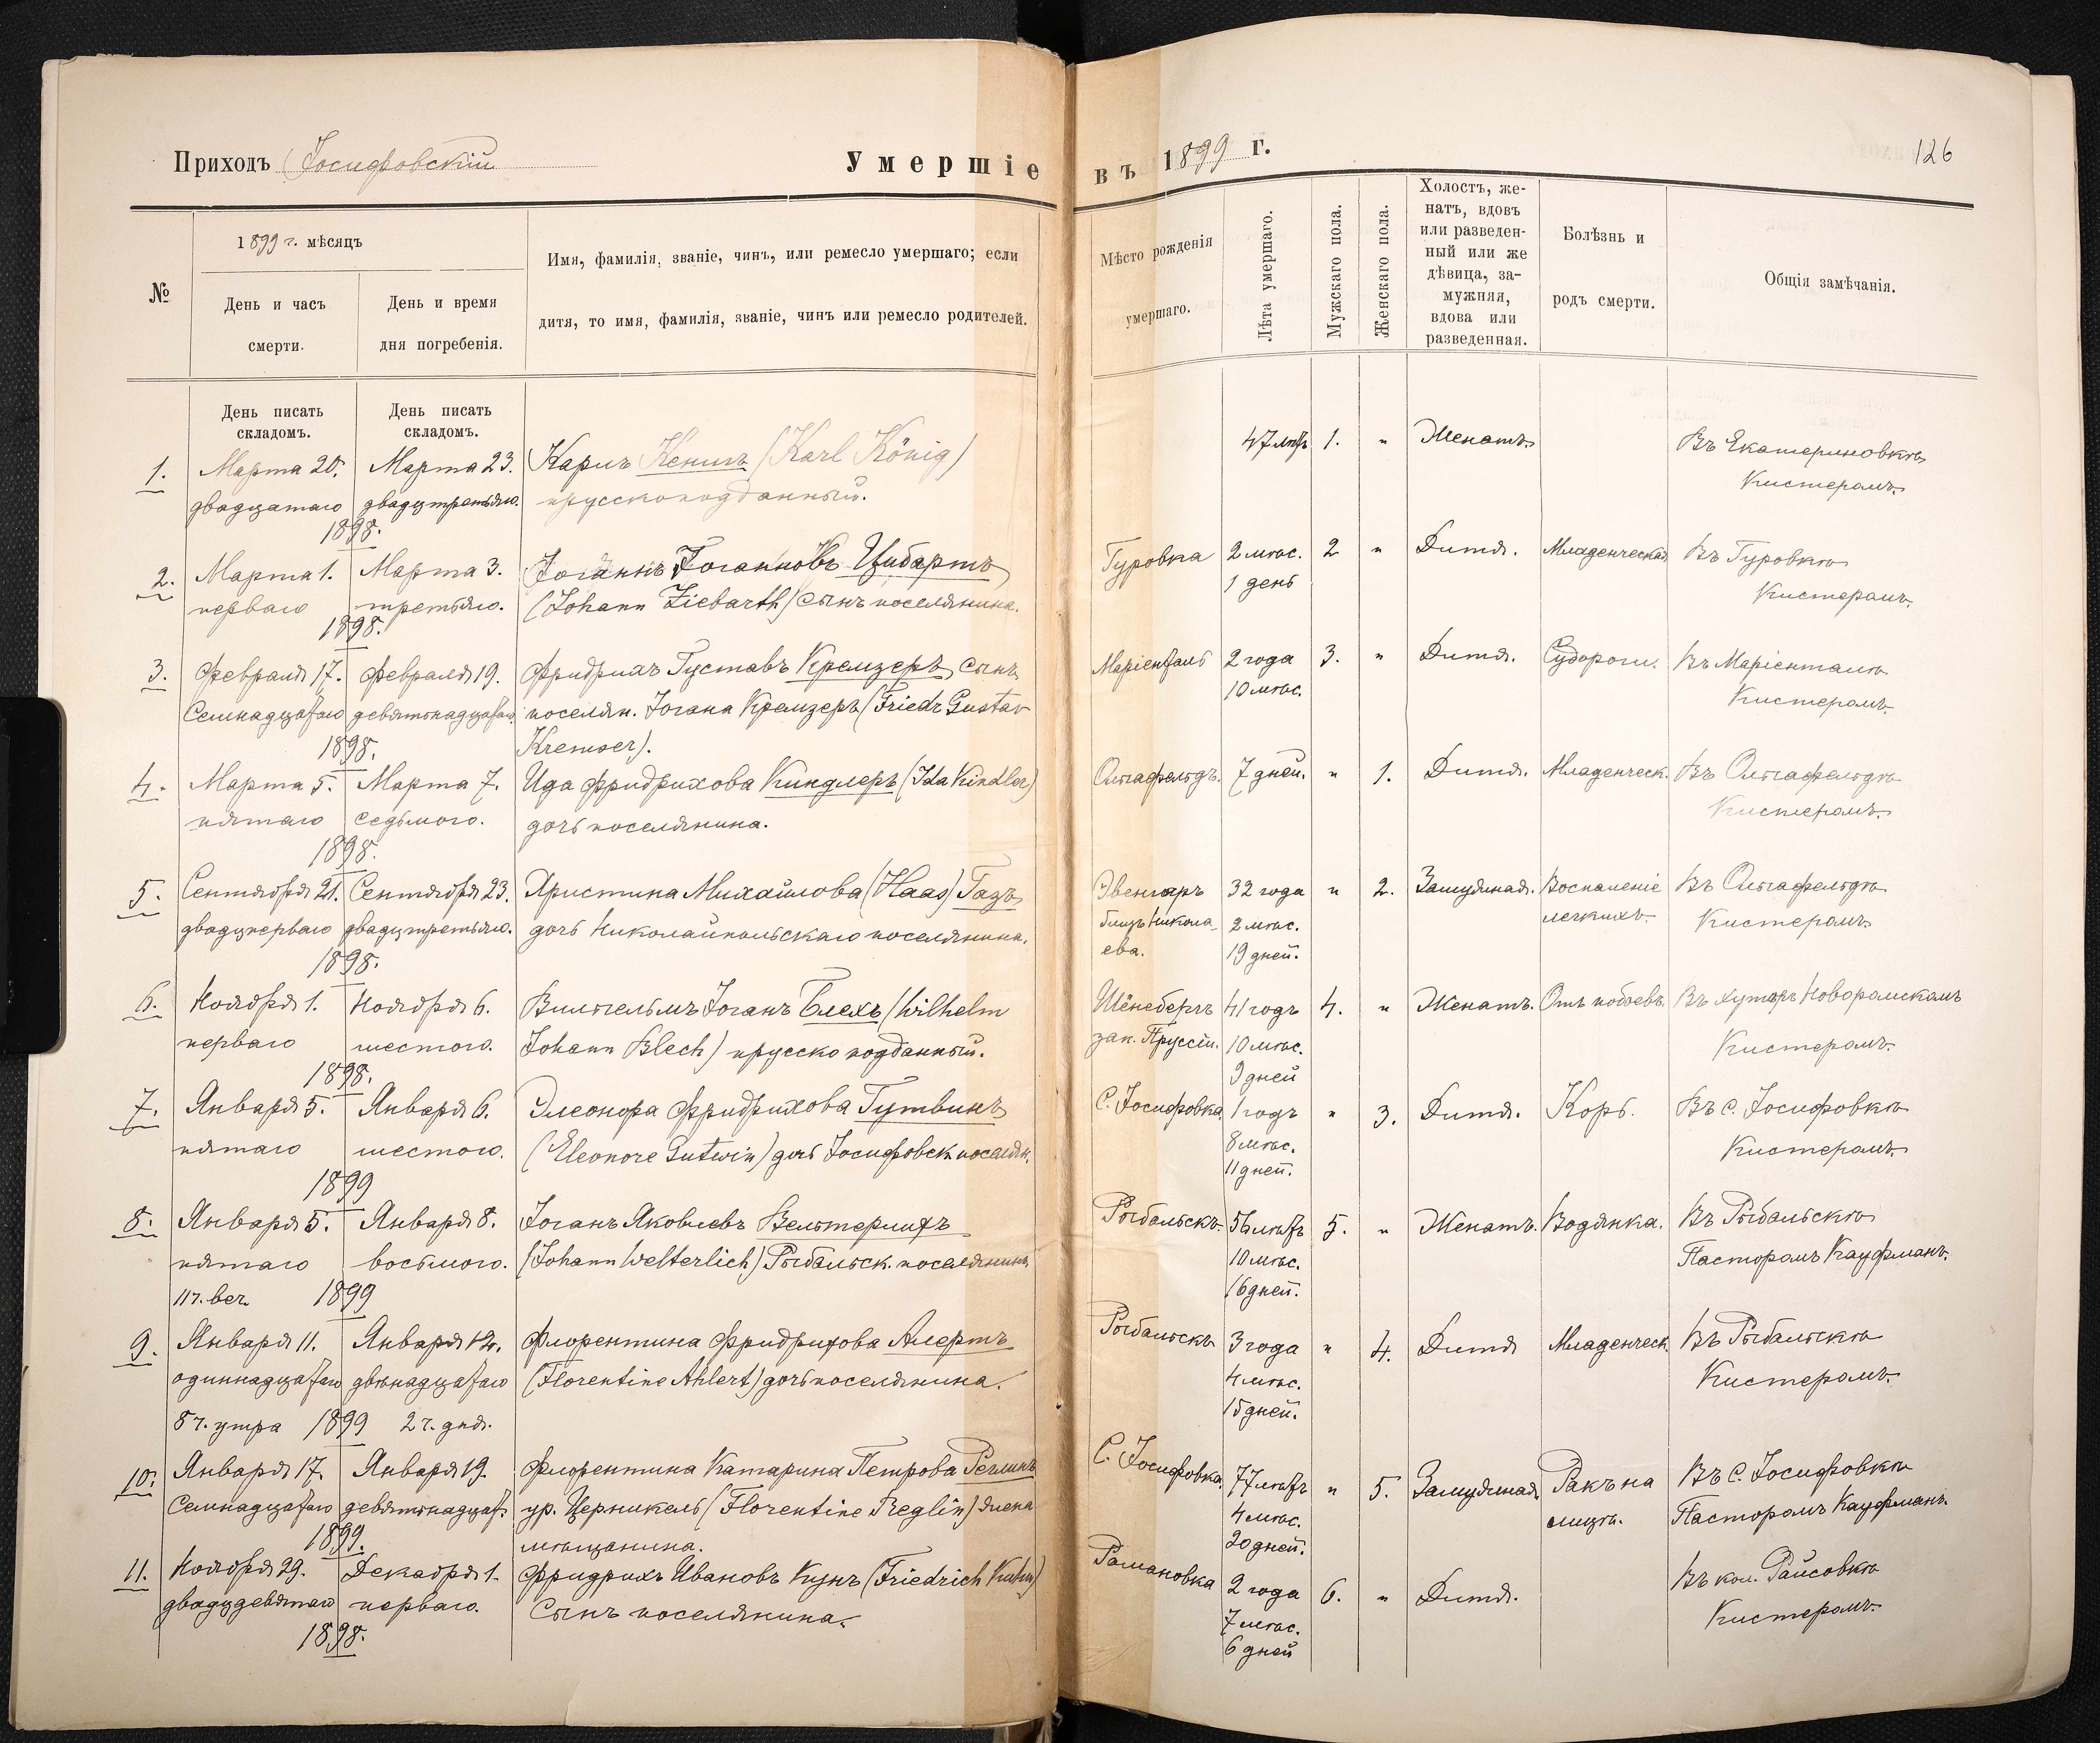 Приходъ Іосифовскій
Умершіе
№
1899 г. мѣсяцъ
День и часъ
смерти.
День и время
дня погребенія.
Имя, фамилія, званіе, чинъ, или ремесло умершаго; если
дитя, то имя, фамилія, званіе, чинъ или ремесло родителей.
День писать
складомъ.
День писать
складомъ.
1. Марта 20. Марта 23. Карлъ Кенигъ (Karl König)
двадцатаго двадцтретьяго. прусскоподданный.
1898.
2. Марта 1. Марта 3. Іоганнъ Іоганновъ Цибартъ
перваго третьяго. (Johann Ziebarth) сынъ поселянина.
1898.
3. Февраля 17. Февраля 19. Фридрихъ Густавъ Кремзеръ, сынъ
Семнадцатаго девятнадцатаго. поселян. Іогана Кремзеръ (Friedr Gustav
1898. Kremser).
4. Марта 5. Марта 7. Ида Фридрихова Киндлеръ (Ida Kindler)
пятаго седьмого. дочь поселянина.
1898.
5. Сентября 21. Сентября 23. Христина Михайлова (Haas) Газъ
двадцперваго двадцтретьяго. дочь Николайпольскаго поселянина.
1898.
6. Ноября 1. Ноября 6. Вильгельмъ Іоганъ Блехъ (Wilhelm
перваго шестого. Johann Blech) прусско подданный.
1898.
7. Января 5. Января 6. Элеонора Фридрихова Гутвинъ
пятаго шестого. (Eleonore Gutwin) дочь Іосифовск. поселян.
1899
8. Января 5. Января 8. Іоганъ Яковлевъ Вельтерлихъ
пятаго восьмого. (Johann Welterlich) Рыбальск. поселянинъ
11 ч. веч. 1899
9. Января 11. Января 12. Флорентина Фридрихова Алертъ
одиннадцатаго двѣнадцатаго (Florentine Ahlert) дочь поселянина.
8 ч. утра 1899 2 ч. дня.
10. Января 17. Января 19. Флорентина Катарина Петрова Реглинъ
Семнадцатаго девятнадцат. ур. Церникель (Florentine Reglin) жена
1899. мѣщанина.
11. Ноября 29. Декабря 1. Фридрихъ Ивановъ Кунъ (Friedrich Kuhn)
двадцдевятаго перваго. Сынъ поселянина.
1898.
въ 1899 г.
126
Мѣсто рожденія
умершаго.
Лѣта умершаго.
Мужскаго пола.
Женскаго пола.
Холостъ, же-
натъ, вдовъ
или разведен-
ный или же
дѣвица, за-
мужняя,
вдова или
разведенная.
Болѣзнь и
родъ смерти.
Общія замѣчанія.
47 лѣтъ 1. " Женатъ. Въ Екатериновкѣ
Кистеромъ.
Гуровка 2 мѣс. 2 " Дитя. Младенческая Въ Гуровкѣ
1 день Кистеромъ.
Маріенталь 2 года 3. " Дитя. Судороги. Въ Маріенталѣ
10 мѣс. Кистеромъ.
Ольгафельдъ. 7 дней. " 1. Дитя. Младенческ. Въ Ольгафельдѣ
Кистеромъ.
Эвенгаръ 32 года " 2. Замужняя. Воспаленіе Въ Ольгафельдѣ
близъ Никола- 2 мѣс. легкихъ. Кистеромъ.
ева. 19 дней.
Шёнебергъ 41 годъ 4. " Женатъ. Отъ побоевъ. Въ хуторѣ Новоромскомъ
зап. Пруссіи. 10 мѣс. Кистеромъ.
9 дней
С. Іосифовка. 1 годъ " 3. Дитя. Корь. Въ с. Іосифовкѣ
8 мѣс. Кистеромъ.
11 дней.
Рыбальскъ. 56 лѣтъ 5. " Женатъ. Водянка. Въ Рыбальскѣ
10 мѣс. Пасторомъ Кауфманъ.
16 дней.
Рыбальскъ 3 года " 4. Дитя Младенческ. Въ Рыбальскѣ
4 мѣс. Кистеромъ.
15 дней.
С. Іосифовка. 77 лѣтъ " 5. Замужняя. Ракъ на Въ с. Іосифовкѣ
4 мѣс. лицѣ. Пасторомъ Кауфманъ.
20 дней.
Романовка 2 года 6. " Дитя. Въ кол. Райсовкѣ
7 мѣс. Кистеромъ.
6 дней